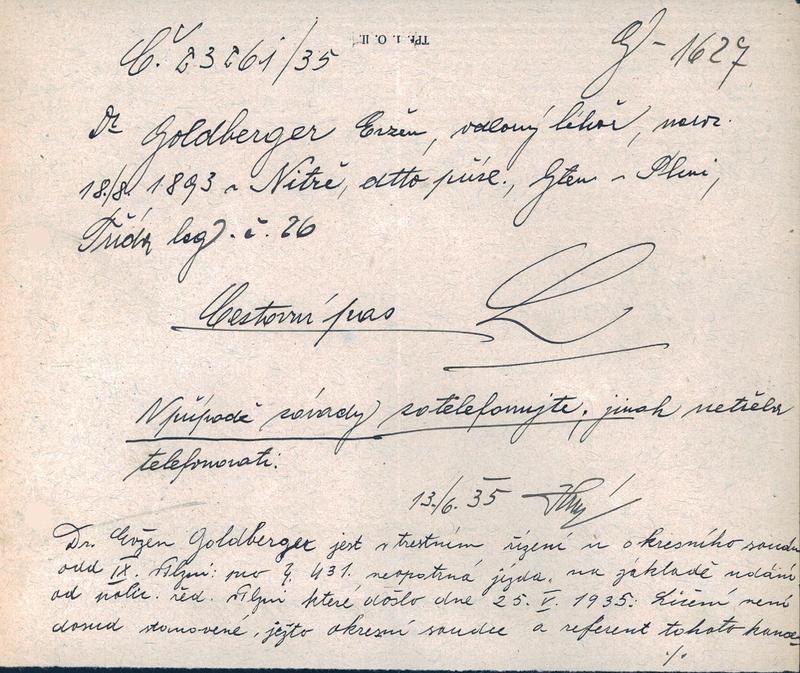 Č. 23261/35
G - 1627
Dr Goldberger Evžen, lékař, naroz.
18./8. 1893 v Nitře, dtto přísl., bytem v Plzni,
Třída leg. č. 26
Cestovní pas
V případě závady zatelefonujte, jinak netřeba
telefonovati.
13./6. 35
Dr. Evžen Goldberger jest v trestním řízení u okresního soudu
odd IX. v Plzni: pro § 431. neopatrná jízda, na základě udání
od polic. řed. v Plzni které došlo dne 25. V. 1935. Líčení není
dosud stanovené, ježto okresní soudce a referent tohoto
./.